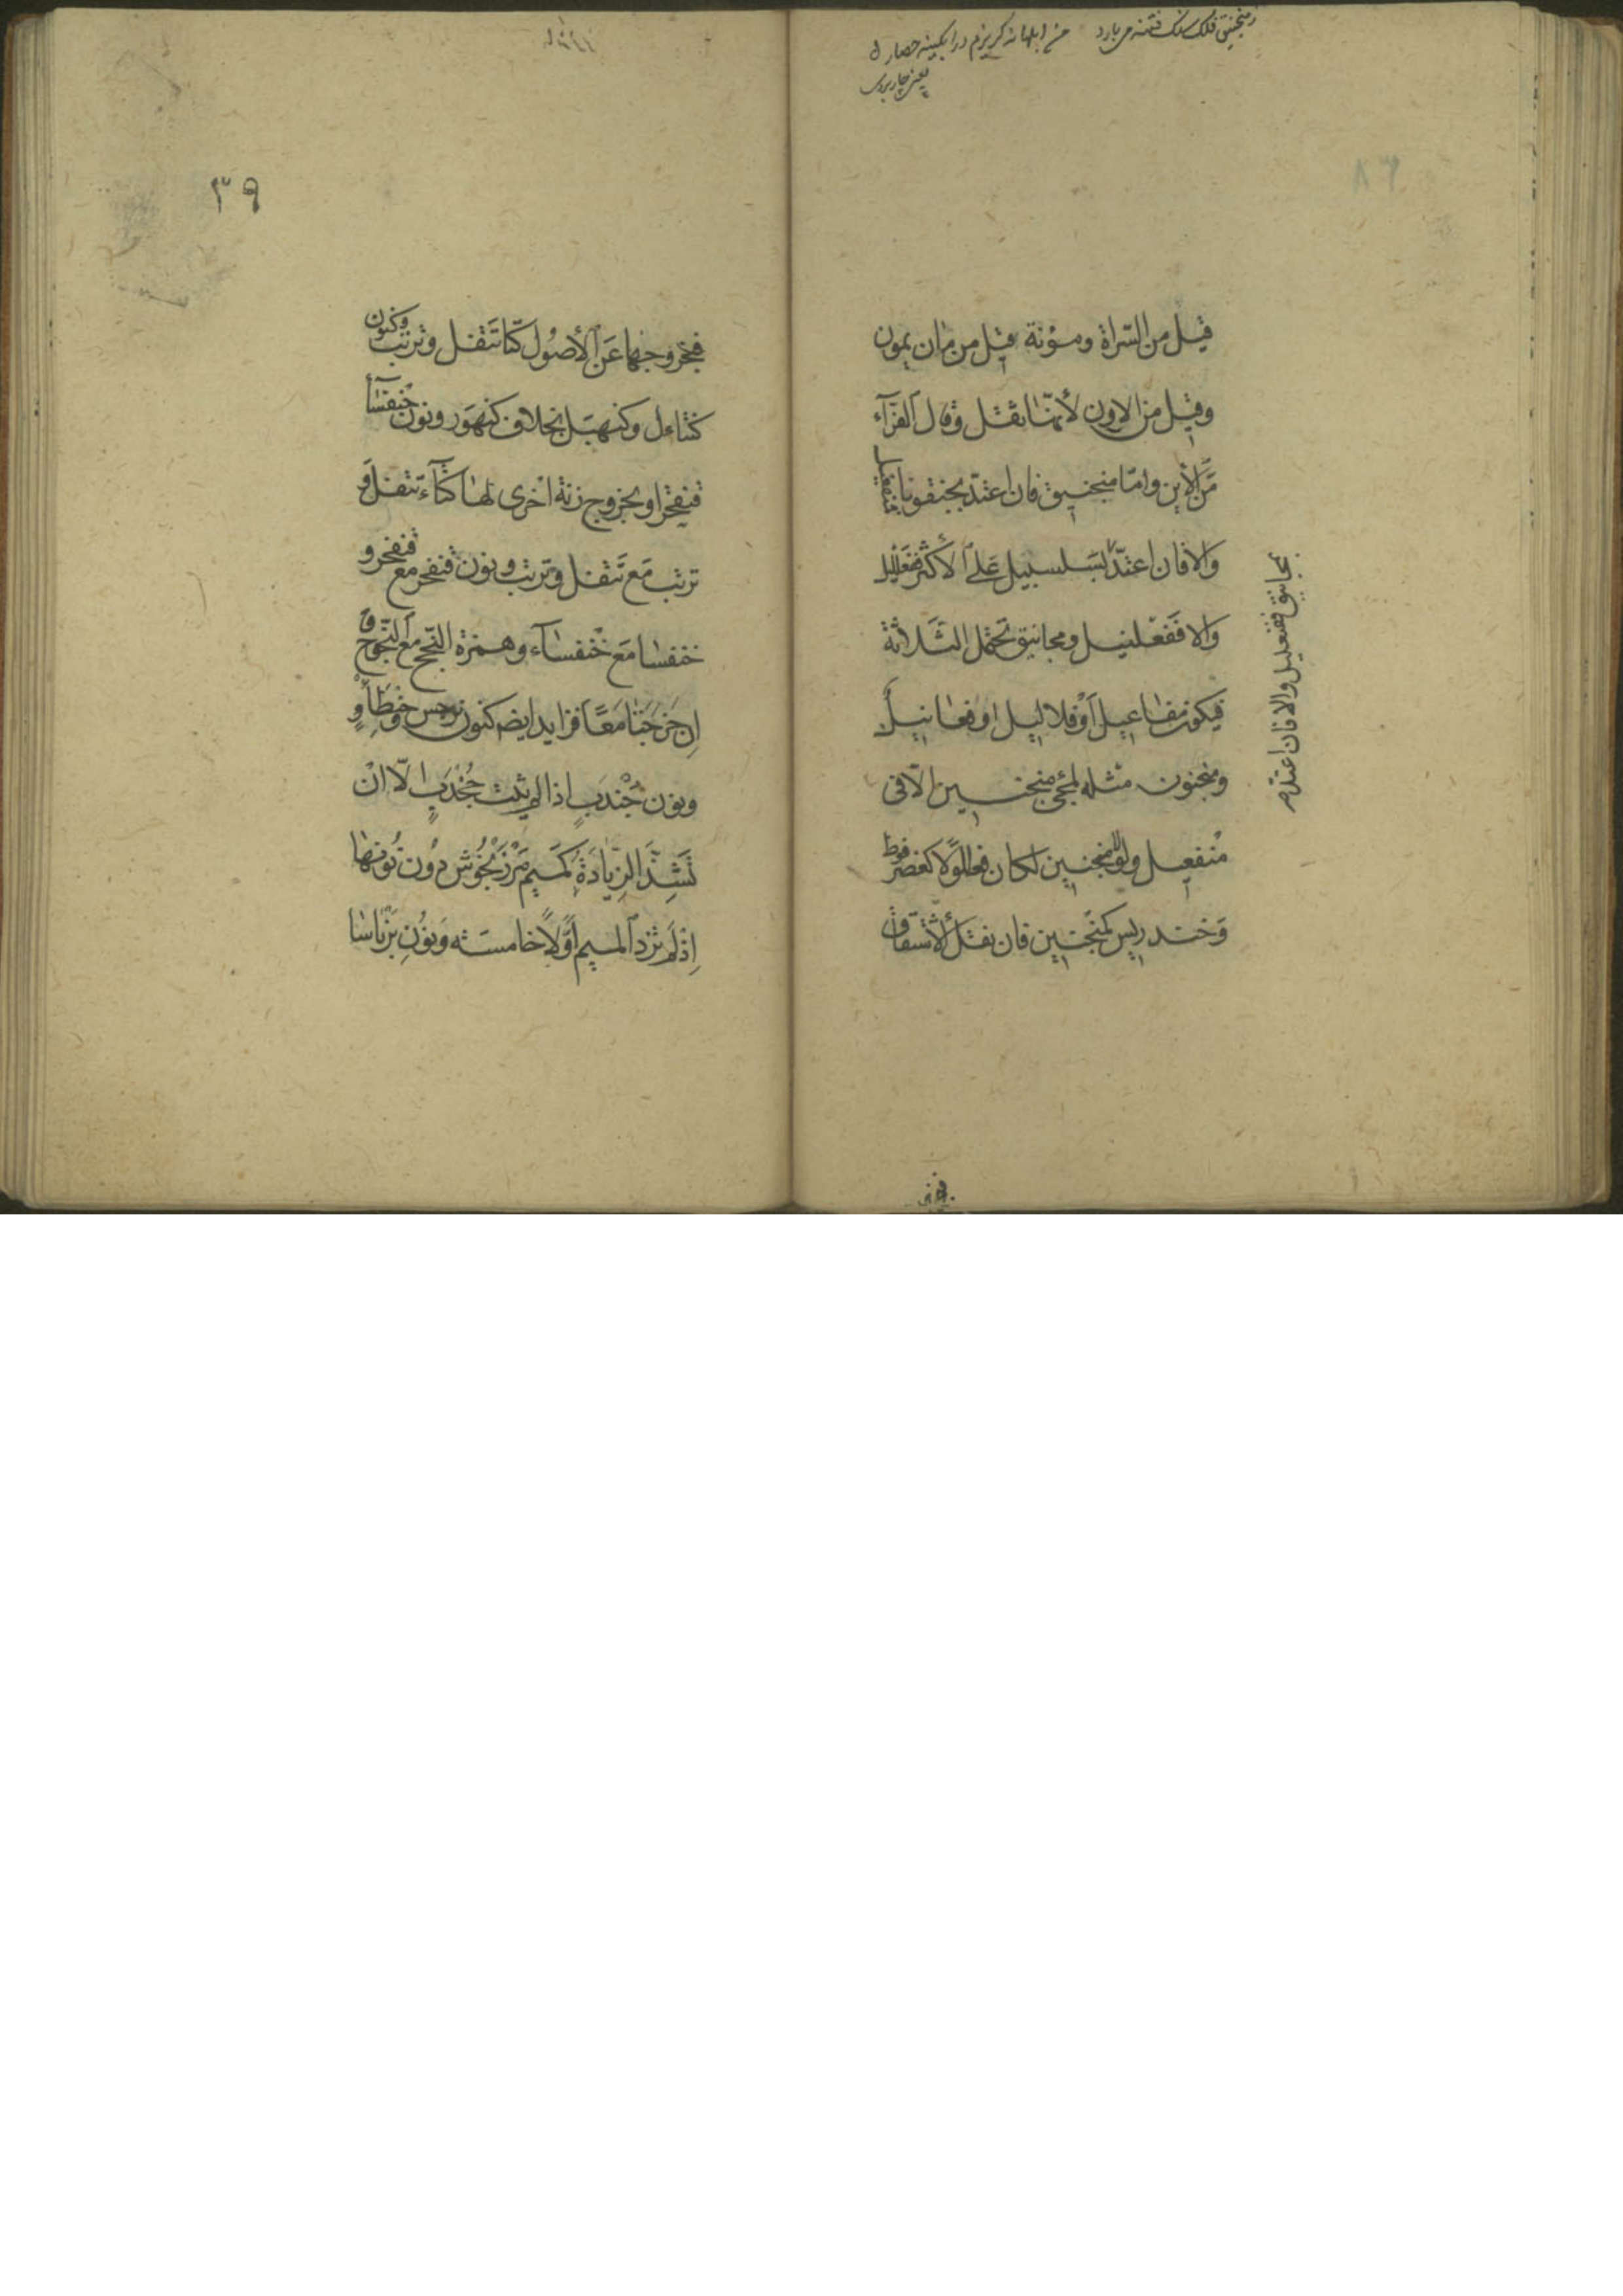 زمنجنیق فلک سنک فتنه می بارد من ابلهانه کریزم در ابکینه حصار
قيل من السّراة ومؤنة قيل من مان يمون
وقيل من الاون لأنّها ثقل وقال الفرّآء
من الأين وامّا منجنيق فان اعتدّ بجنقونا فمنفعيل
والا فان اعتدّ بمجانيق ففنعليل والا فان اعتدّ
بسلسبيل على الأكثر ففعلليل
والا ففعلنيل ومجانيق تحتمل الثلاثة
فيكون مفاعيل أو فلاليل او فعانيل
ومنجنون مثله لمجئ منجنين الّا في
منفعيل ولولا منجنين لكان فعللولا كعضرفوط
وخندريس كمنجنين فان فقد الأشتقاق
٣٩
فبخروجها عن الأصول كتا تتفل وترتب وكنون
كنتاءل وكنهبل بخلاف كنهور ونون خنفسآء
قنفخر او بخروج زنة اخرى لها كتآء تتفل و
ترتب مع تتفل وترتب ونون قنفخر مع قنفخر و
خنفسا مع خنفسآء وهمزة النجج مع النجوج
إن خرجتا معًا فزايد ايضا كنون نرجس وحنطأو
ونون جندب اذا لم يثبت جخدب الّا ان
تشذّ الزيادة كميم مرزنجوش دون نونها
إذ لم تزد الميم أوّلا خامسة ونون برناسا